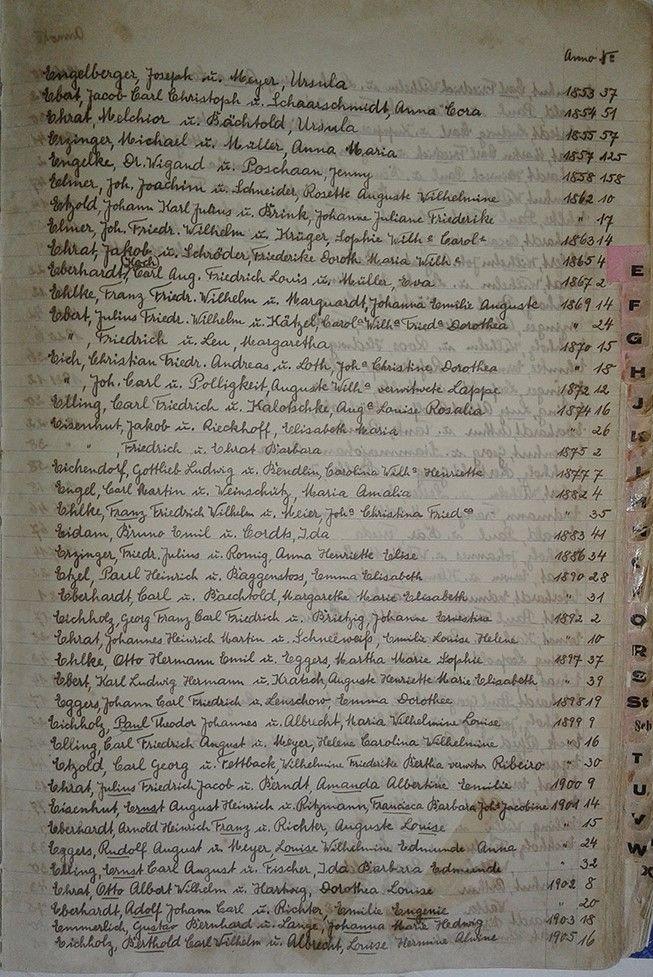 Anno №
Engelberger, Joseph u. Meyer, Ursula 1853 37
Ebat, Jacob Carl Christoph u. Schaarschmidt, Anna Cora 1854 51
Ehrat, Melchior u. Bächtold, Ursula 1855 57
Erzinger, Michael u. Müller, Anna Maria 1857 125
Engelke, Dr. Wigand u. Poschaan, Jenny 1858 158
Elmer, Joh. Joachim u. Schneider, Rosette Auguste Wilhelmine 1862 10
Etzold, Johann Karl Julius u. Brink, Johanne Juliane Friederike " 17
Elmer, Joh. Friedr. Wilhelm u. Krüger, Sophie Wilhª Carolª 1863 14
Ehrat, Jakob u. Schröder, Friederike Doroth Maria Wilhª 1865 4
Eberhardt, Carl Aug. Friedrich Louis u. Müller, Eva 1867 2
Ehlke, Franz Friedr. Wilhelm u. Marquardt, Johanna Emilie Auguste 1869 14
Ebert, Julius Friedr. Wilhelm u. Hätzel, Carolª Wilhª Friedª Dorothea " 24
" , Friedrich u. Leu, Margaretha 1870 15
Eich, Christian Friedr. Andreas u. Loth, Johª Christine Dorothea " 18
" , Joh. Carl u. Polligkeit, Auguste Wilhª verwitwete Lappe 1872 12
Elling, Carl Friedrich u. Kalotschke, Augª Louise Rosalia 1874 16
Eisenhut, Jakob u. Rieckhoff, Elisabeth Maria " 26
" , Friedrich u. Ehrat Barbara 1875 2
Eichendorf, Gottlieb Ludwig u. Bendlin, Carolina Wilhª Henriette 1877 7
Engel, Carl Martin u. Weinschütz, Maria Amalia 1882 4
Ehlke, Franz Friedrich Wilhelm u. Meier, Johª Christina Friedᶜᵃ " 35
Eidam, Bruno Emil u. Cordts, Ida 1883 41
Erzinger, Friedr. Julius u. Romig, Anna Henriette Elise 1886 34
Etzel, Paul Heinrich u. Baggenstoss, Emma Elisabeth 1890 28
Eberhardt, Carl u. Baechtold, Margarethe Marie Elisabeth " 31
Eichholz, Georg Franz Carl Friedrich u. Brietzig, Johanne Ernestine 1892 2
Ehrat, Johannes Heinrich Martin u. Schneeweiß, Emilie Louise Helene " 10
Ehlke, Otto Hermann Emil u. Eggers, Martha Marie Sophie 1897 37
Ebert, Karl Ludwig Hermann u. Kratsch, Auguste Henriette Marie Elisabeth " 39
Eggers, Johann Carl Friedrich u. Lenschow, Emma Dorothee 1898 19
Eichholz, Paul Theodor Johannes u. Albrecht, Maria Wilhelmine Louise 1899 9
Elling, Carl Friedrich August u. Meyer, Helene Carolina Wilhelmine " 16
Etzold, Carl Georg u. Fettback, Wilhelmine Friederike Bertha verwitw. Ribeiro " 30
Ehrat, Julius Friedrich Jacob u. Berndt, Amanda Albertine Emilie 1900 9
Eisenhut, Ernst August Heinrich u. Ritzmann, Francisca Barbara Johª Jacobine 1901 14
Eberhardt, Arnold Heinrich Franz u. Richter, Auguste Louise " 15
Eggers, Rudolf August u. Meyer Louise Wilhelmine Edmunde Anna " 24
Elling, Ernst Carl August u. Fischer, Ida Barbara Edmunde " 32
Ehrat, Otto Albert Wilhelm u. Hartwig, Dorothea Louise 1902 8
Eberhardt, Adolf Johann Carl u. Richter, Emilie Eugenie " 20
Emmerlich, Gustav Bernhard u. Lange, Johanna Marie Hedwig 1903 18
Eichholz, Berthold Carl Wilhelm u. Albrecht, Louise Hermine Alwine 1905 16
E
F
G
H
J
K
L
M
N
O
R
S
St
Sch
T
U
V
W
X